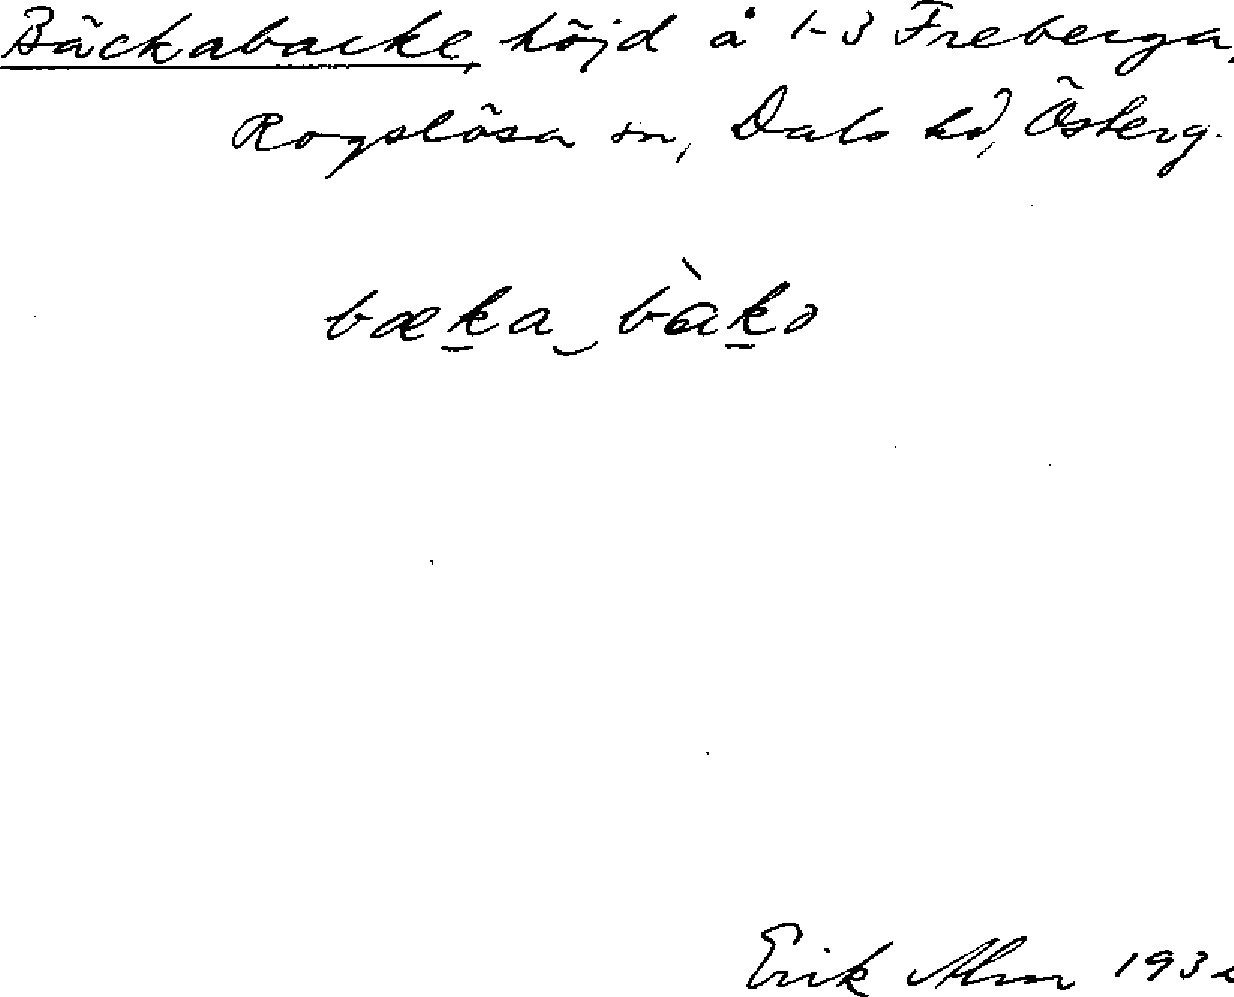 Bäckabacke, höjd å 1-3 Freberga,
Rogslösa sn, Dals hd, Österg.
bæka‿bàkə
Erik Alm 193